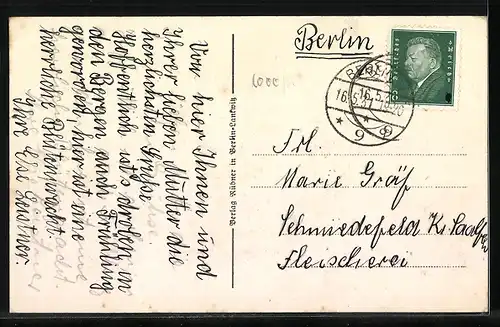 Berlin
Von hier Ihnen und
Ihrer lieben Mutter die
herzlichsten Grüße
Hoffentlich ist's droben in
den Bergen auch Frühling
geworden, hier ist eine
herrliche Blütenpracht
Ihre Else
Verlag Rübner in Berlin-Lankwitz
Deutsches Reich
8
BERLIN
16.5.
9
Frl.
Marie Gräf
Schmiedefeld Kr. Saalfeld
Fleischerei